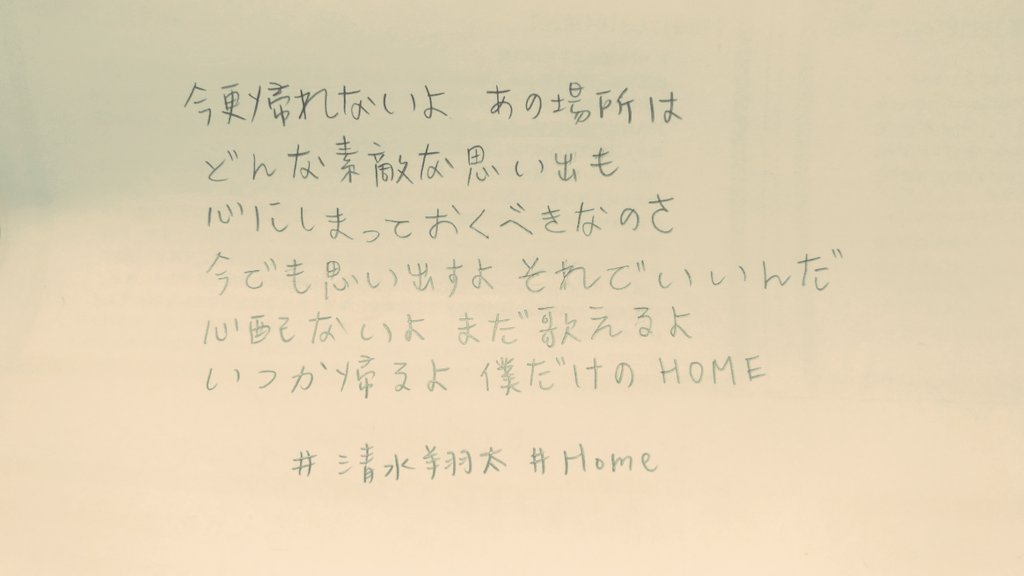 今更帰れないよ あの場所は
どんな素敵な思い出も
心にしまっておくべきなのさ
今でも思い出すよ それでいいんだ
心配ないよ まだ歌えるよ
いつか帰るよ 僕だけの HOME
#清水翔太 #Home